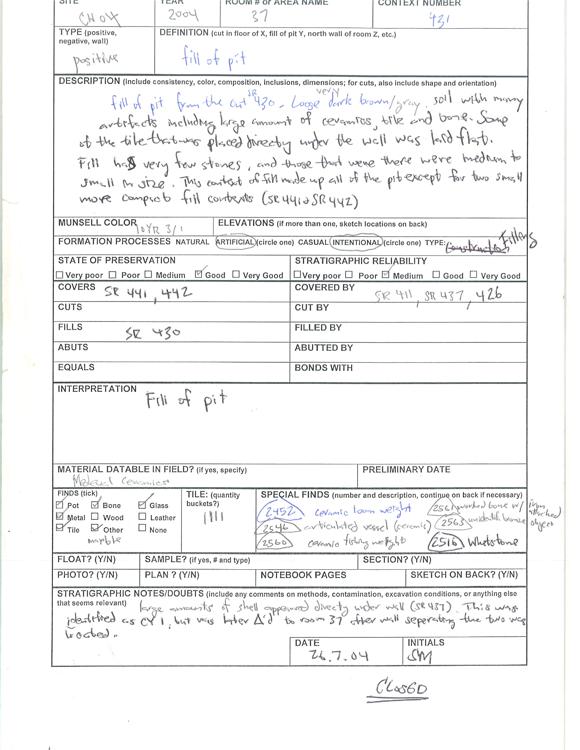 SITE YEAR ROOM # or AREA NAME CONTEXT NUMBER
CH04 2004 37 431
TYPE (positive, negative, wall) DEFINITION (cut in floor of X, fill of pit Y, north wall of room Z, etc.)
positive fill of pit
DESCRIPTION (include consistency, color, composition, inclusions, dimensions; for cuts, also include shape and orientation)
fill of pit from the cut SR 430. Loose very dark brown/gray soil with many
artifacts including large amount of ceramics, tile and bone. Some
of the tile that was placed directly under the wall was laid flat.
Fill has very few stones, and those that were there were medium to
small in size. This context of fill made up all of the pit except for two small
more compact fill contexts (SR 441 & SR 442)
MUNSELL COLOR 10YR 3/1 ELEVATIONS (if more than one, sketch locations on back)
FORMATION PROCESSES NATURAL ARTIFICIAL (circle one) CASUAL INTENTIONAL (circle one) TYPE: Construction Filling
STATE OF PRESERVATION STRATIGRAPHIC RELIABILITY
Very poor Poor Medium Good Very Good Very poor Poor Medium Good Very Good
COVERS SR 441, 442 COVERED BY SR 411, SR 437, 426
CUTS CUT BY
FILLS SR 430 FILLED BY
ABUTS ABUTTED BY
EQUALS BONDS WITH
INTERPRETATION
Fill of pit
MATERIAL DATABLE IN FIELD? (if yes, specify) PRELIMINARY DATE
Medieval Ceramics
FINDS (tick) TILE: (quantity buckets?) SPECIAL FINDS (number and description, continue on back if necessary)
Pot Bone Glass
Metal Wood Leather
Tile Other None
marble
IIII
2452 ceramic loom weight
2546 articulated vessel (ceramic)
2560 ceramic fishing weight
2561 worked bone w/ iron attached object
2563 worked bone
2516 Whetstone
FLOAT? (Y/N) SAMPLE? (if yes, # and type) SECTION? (Y/N)
PHOTO? (Y/N) PLAN ? (Y/N) NOTEBOOK PAGES SKETCH ON BACK? (Y/N)
STRATIGRAPHIC NOTES/DOUBTS (include any comments on methods, contamination, excavation conditions, or anything else that seems relevant)
large amounts of shell appeared directly under wall (SR 437). This was
identified as CY 1, but was later Δ'd to room 37 after wall seperating the two was
located.
DATE INITIALS
26.7.04 SM
CLOSED